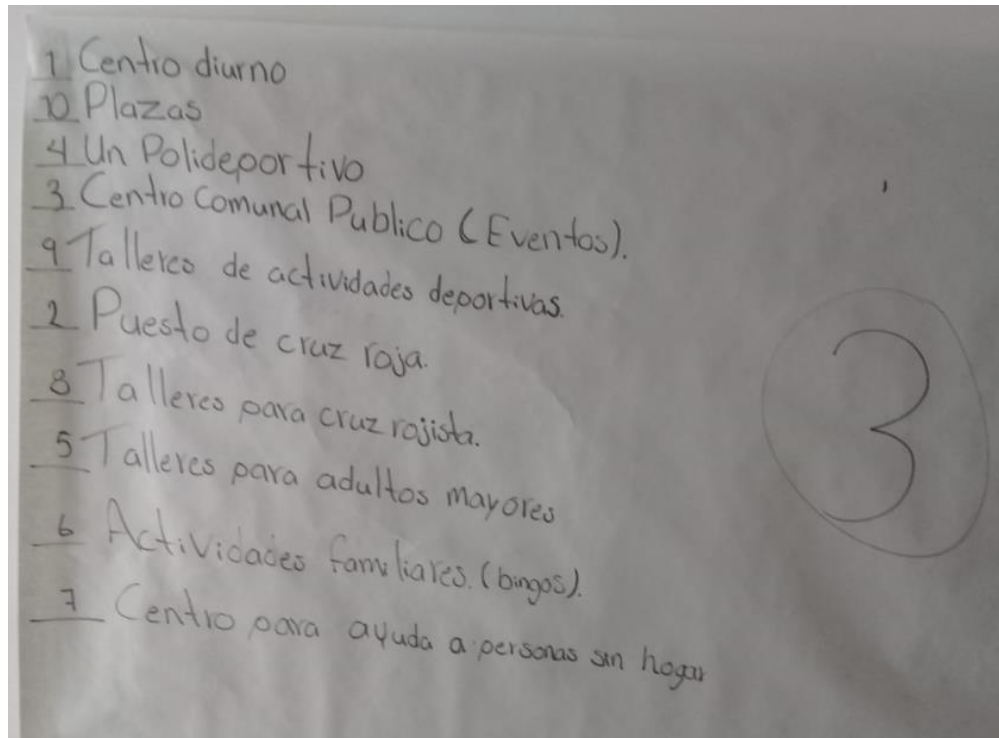 1 Centro diurno
10 Plazas
4 Un Polideportivo
3 Centro Comunal Publico (Eventos).
9 Talleres de actividades deportivas.
2 Puesto de cruz roja.
8 Talleres para cruz rojista.
5 Talleres para adultos mayores
6 Actividades familiares. (bingos).
7 Centro para ayuda a personas sin hogar
3